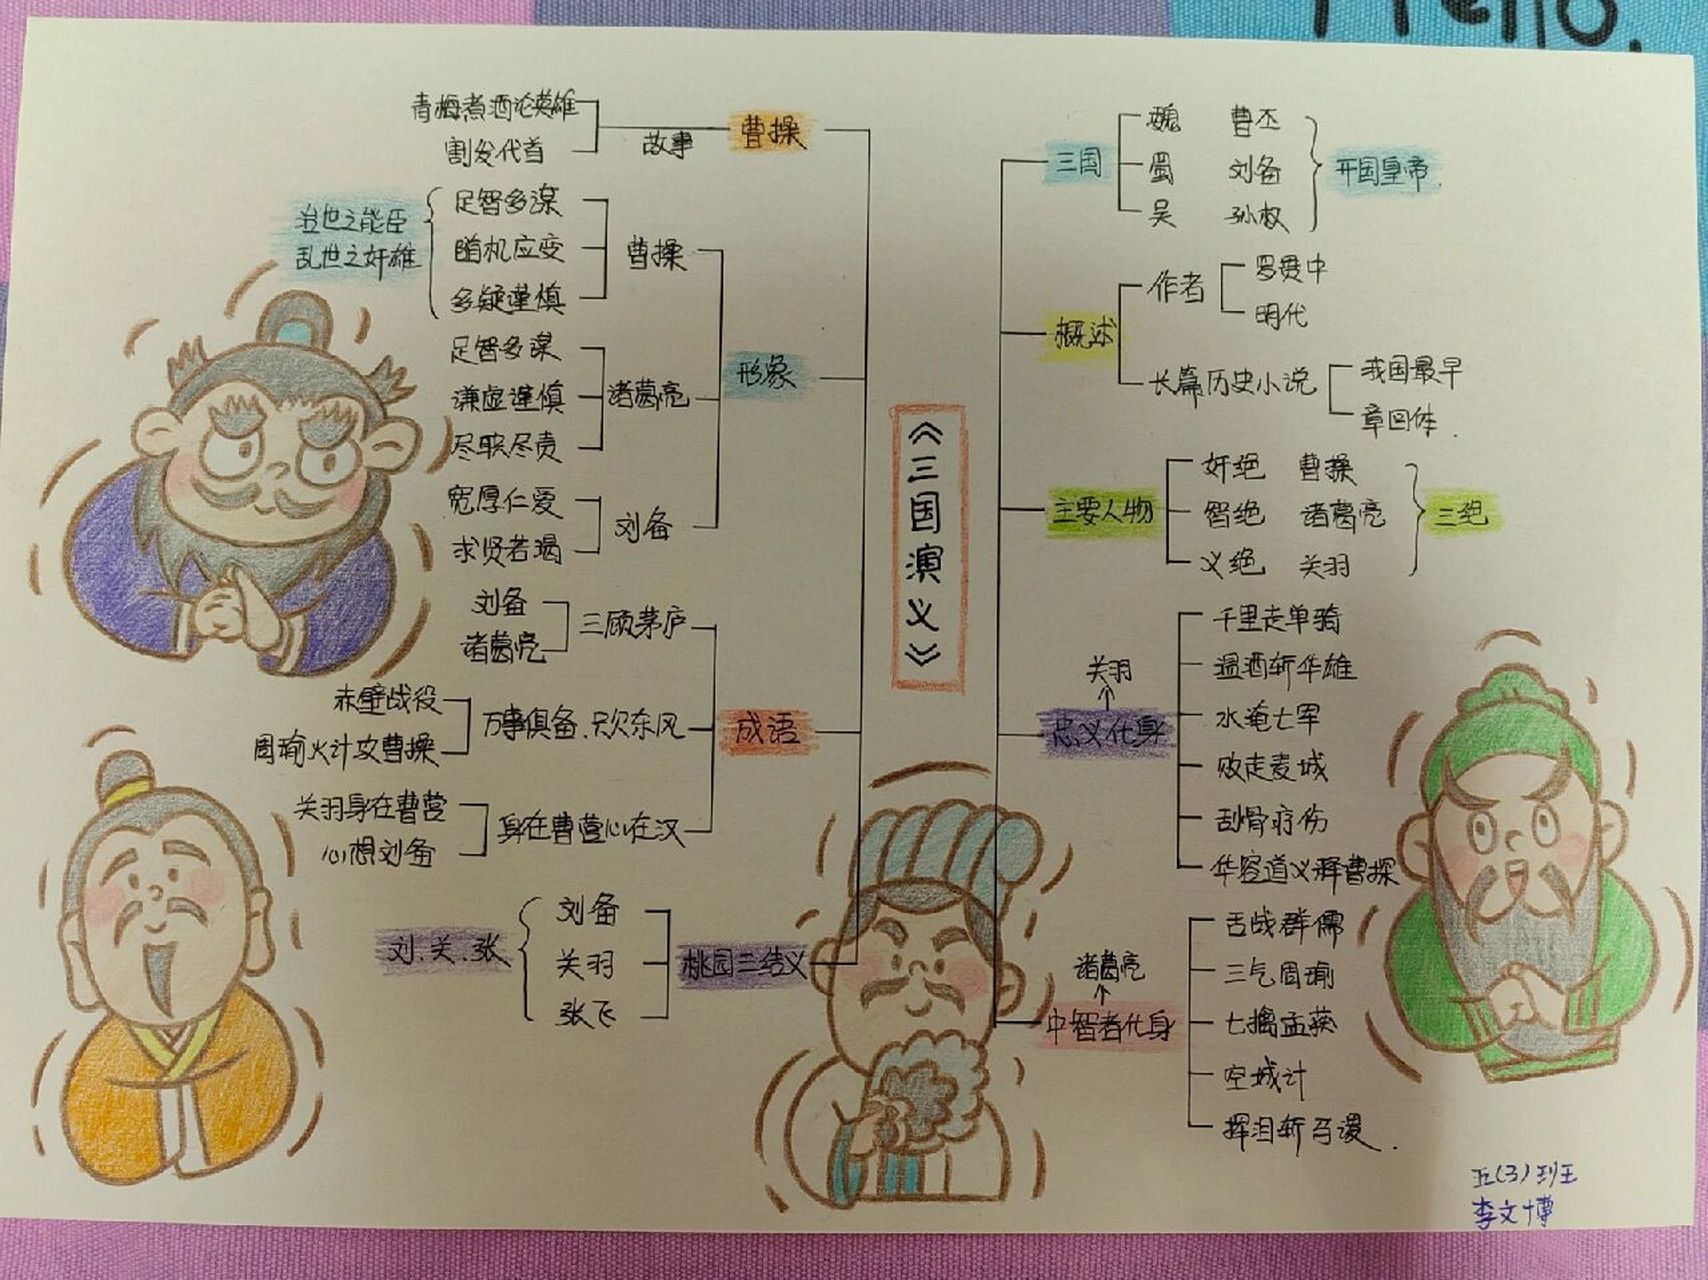 Hello.
《三国演义》
曹操
故事
青梅煮酒论英雄
割发代首
形象
曹操
足智多谋
随机应变
多疑谨慎
治世之能臣
乱世之奸雄
诸葛亮
足智多谋
谦虚谨慎
尽职尽责
刘备
宽厚仁爱
求贤若渴
成语
三顾茅庐
刘备
诸葛亮
万事俱备.只欠东风
赤壁战役
周瑜火计攻曹操
身在曹营心在汉
关羽身在曹营
心想刘备
桃园三结义
刘备
关羽
张飞
刘.关.张
三国
魏 曹丕
蜀 刘备
吴 孙权
开国皇帝.
概述
作者
罗贯中
明代
长篇历史小说
我国最早
章回体.
主要人物
奸绝 曹操
智绝 诸葛亮
义绝 关羽
三绝
关羽
忠义化身
千里走单骑
温酒斩华雄
水淹七军
败走麦城
刮骨疗伤
华容道义释曹操
诸葛亮
中智者化身
舌战群儒
三气周瑜
七擒孟获
空城计
挥泪斩马谡.
五(3)班王
李文博